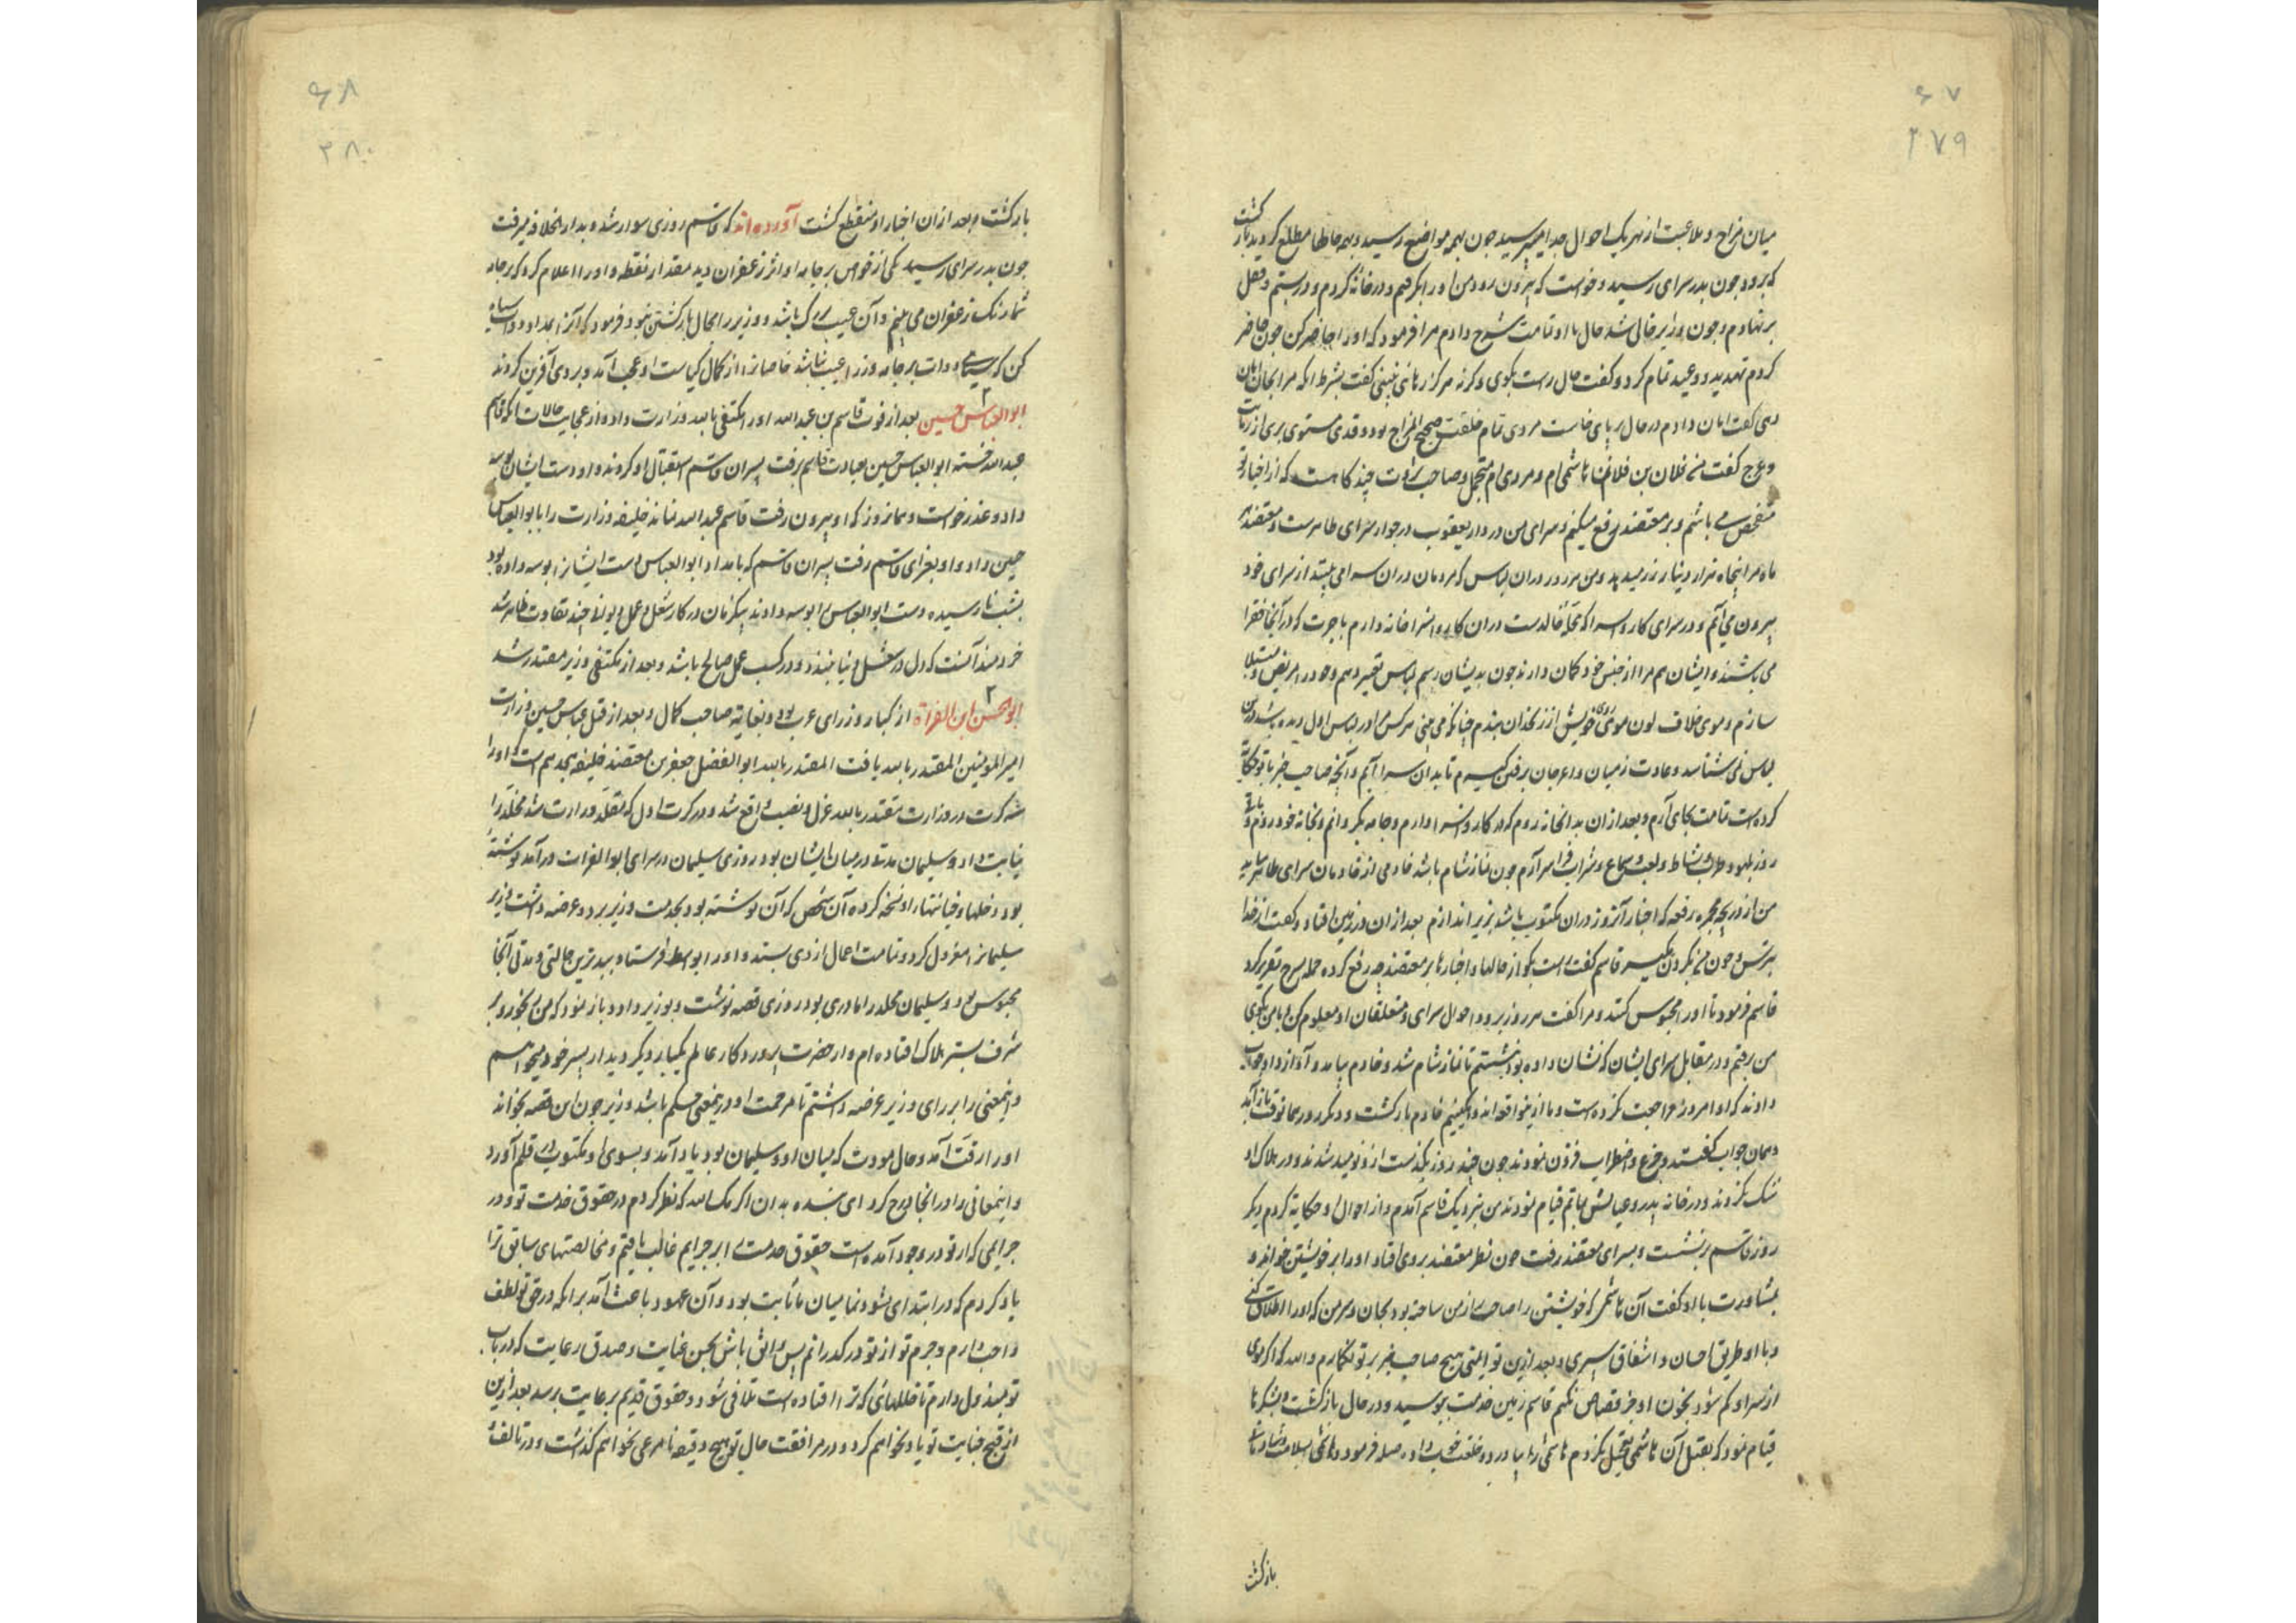 ۶۷
۲۷۹
میان مزاح و ملاعبت از هر یک احوال جدا می‌پرسید چون بهمه مواضع رسید و بهمه حالها مطلع گردید بازگشت
که برود چون بدر سرای رسید و خواست که بیرون رود من او را بگرفتم و در خانه کردم و در ببستم و قفل
بر نهادم و چون وزیر خالی شد حال با او تمامت شرح دادم مرا فرمود که او را حاضر کن چون حاضر
کردم تهدید و وعید تمام کرد و گفت حال راست بگوی و کرنه هرگز رهائی نبینی گفت بشرط آنکه مرا بجان امان
دهی گفت امان دادم در حال بر پای خاست مردی تمام خلقت صحیح المزاج بود و قدی مستوی بری از زمانت
و عرج گفت من فلان بن فلانم هاشمی‌ام و مردی‌ام متجمل و صاحب ثروت چند گاهست که از اخبار تو
متفحص می باشم و بر معتضد رفع میکنم و سرای من در دار یعقوب در جوار سرای طاهرست و معتضد هر
ماه مرا پنجاه هزار دینار زر میدهد و من هر روز در ان لباس که مردمان در ان سرا می بینند از سرای خود
بیرون می آیم و در سرای کاروانسرا که محله خالدست در ان کاروانسرا خانه دارم باجرت که در آنجا فقرا
می باشند و ایشان هم مرا از جنس خود گمان دارند چون بدیشان رسم لباس تغییر دهم و خود را مریض و مبتلا
سازم و موی خلاف لون موی خویش از زنخدان بندم چنانکه می بینی هر کس مرا در لباس اول دیده باشد درین
لباس نمی شناسد و عادت زمیان و اعرجان برفتن گیرم تا بدان سرا آیم و آنچه صاحب خبر با تو حکایت
کرده است تمامت بجای آرم و بعد از ان بدان خانه روم که در کاروانسرا دارم و جامه بگردانم و بخانه خود روم و باقی
روز بلهو و طرب و نشاط و لعب و سماع و شراب فرا سر آرم چون نماز شام باشد خادمی از خادمان سرای طاهر بیاید
من از دریچه حجره رقعه که اخبار آن روز در ان مکتوب باشد بزیر اندازم بعد از ان در زمین افتاد و گفت از خدا
بترس و خون من بگردن مگیر قاسم گفت راست بگو از حالها و اخبار ما بر معتضد چه رفع کرده جمله شرح تقریر کرد
قاسم فرمود تا او را محبوس کنند و مرا گفت هر روز برو و احوال سرای و متعلقان او معلوم کن و با من بگوی
من رفتم و در مقابل سرای ایشان که نشان داده بود بنشستم تا نماز شام شد و خادم بیامد و آواز داد جواب
دادند که او امروز مراجعت نکرده است و ما ازین واقعه اندوهگینیم خادم بازگشت و دیگر روز همان وقت باز آمد
و همان جواب گفتند و جزع و اضطراب فزون نمودند چون چند روز بگذشت ازو نومید شدند و در هلاک او
شک نکردند و در خانه پدر و عیالش بماتم قیام نمودند من بنزدیک قاسم آمدم و از احوال او حکایت کردم دیگر
روز قاسم بر نشست و بسرای معتضد رفت چون نظر معتضد بر وی افتاد او را بر خویشتن خواند و
بمشاورت با او گفت آن هاشمی که خویشتن را صاحب ... ساخته بود بجان و سر من که او را اطلاق کنی
و با او طریق احسان و اشفاق سپری و بعد ازین تو ایمنی هیچ صاحب خبر بر تو نگمارم و الله که اگر موی
از سر او کم شود بخون او جز قصاص نکنم قاسم زمین خدمت ببوسید و در حال بازگشت و بشکرها
قیام نمود که بقتل آن هاشمی تعجیل نکردم هاشمی را بیاورد و خلعت خوب داد و صله فرمود و هاشمی بسلامت و شادمانی
بازگشت
۶۸
۲۸۰
بازگشت و بعد از ان اخبار او منقطع گشت آورده‌اند که قاسم روزی سوار شده بدار الخلافه میرفت
چون بدر سرای رسید یکی از خواص بر جامه او اثر زعفران دید مقدار نقطه و او را اعلام کرد که بر جامه
شما رنگ زعفران می بینم و آن عیب بزرگ باشد و وزیر را مجال بازگشتن نبود فرمود که آنرا بمداد دوات سیاه
کن که سیاهی دوات بر جامه وزرا عیب نباشد خاصانرا از کمال کیاست او عجب آمد و بر وی آفرین کردند
ابو العباس حسین بعد از فوت قاسم بن عبد الله او را مکتفی بالله وزارت داد و از عجایب حالات آنکه قاسم
عبد الله خسته ابو العباس حسین بعیادت قاسم برفت پسران قاسم استقبال او کردند و او دست ایشان بوسه
داد و عذر خواست و همانروز که او بیرون رفت قاسم عبد الله نماند خلیفه وزارت را بابو العباس
حسین داد و او بعزای قاسم رفت پسران قاسم که بامداد ابو العباس دست ایشانرا بوسه داده بود
بشب نارسیده دست ابو العباس را بوسه دادند بیکزمان در کار شغل و عمل دیوانی چند تفاوت ظاهر شد
خردمند آنست که دل در شغل دنیا نبندد و در کسب عمل صالح باشد و بعد از مکتفی وزیر مقتدر شد
ابو الحسن ابن الفراة از کبار وزرای عرب بود و بغایت صاحب کمال و بعد از قتل عباس حسین وزارت
امیر المومنین المقتدر بالله یافت المقتدر بالله ابو الفضل جعفر بن معتضد خلیفه هجدهم است او را
سه کرت در وزارت مقتدر بالله عزل و نصب واقع شد و در کرت اول که متقلد وزارت شد مخلد را
نیابت داد و سلیمان مدتها در میان ایشان بود روزی سلیمان در سرای ابو الفرات در آمد نوشته
بود دخلها و خیانتهاء او نسخه کرده آن شخص که آن نوشته بود بخدمت وزیر برد و عرضه داشت وزیر
سلیمانرا معزول کرد و تمامت اعمال از وی بستد و او را بواسط فرستاد ببدترین حالتی و مدتی آنجا
محبوس بود و سلیمان مخلد را مادری بود روزی قصه نوشت و بوزیر داد و باز نمود که من رنجورم و بر
شرف بستر هلاک افتاده‌ام و از حضرت پروردگار عالم یکبار دیگر دیدار پسر خود میخواهم
و اینمعنی را بر رای وزیر عرضه داشتم تا مرحمت او درینمعنی حکم باشد وزیر چون این قصه بخواند
او را رقت آمد و حال مودت که میان او و سلیمان بود یاد آمد و بسوی او مکتوب در قلم آورد
و اینمعانی را در آنجا درج کرد ای بنده بدان اکرمک الله که نظر کردم در حقوق خدمت تو و در
جرایمی که از تو در وجود آمده است حقوق خدمت را بر جرایم غالب یافتم و مخالصتهای سابق ترا
یاد کردم که در ابتدای نشو و نما میان ما ثابت بود و آن عهود باعث آمد بر آنکه در حق تو لطف
واجب دارم و جرم تو از تو در گذرانم پس واثق باش بحسن عنایت و صدق رعایت که در باب
تو مبذول دارم تا خللهائی که ترا افتاده است تلافی شود و حقوق قدیم برعایت برسد بعد ازین
از قبح جنایت تو یاد نخواهم کرد و در مرافقت حال تو هیچ دقیقه نامرعی نخواهم گذاشت و در تالف